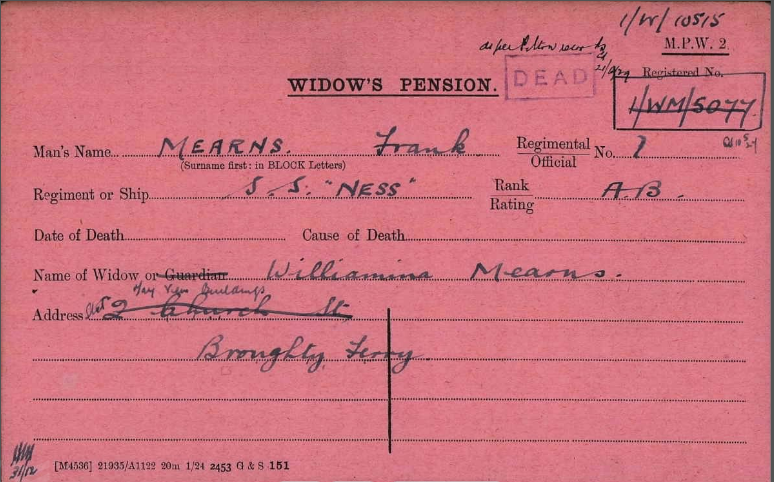 1/W/10515
M.P.W. 2.
as per
DEAD
Registered No.
WIDOW'S PENSION.
1/WM/5077
Man's Name MEARNS. Frank Regimental Official No. 7
(Surname first: in BLOCK Letters)
Regiment or Ship S.S. "NESS" Rank Rating A.B.
Date of Death Cause of Death
Name of Widow or Guardian Williamina Mearns.
Tay View Buildings
Address 2 Church St
Broughty Ferry.
31/12
[M4536] 21935/A1122 20m 1/24 2453 G & S 151